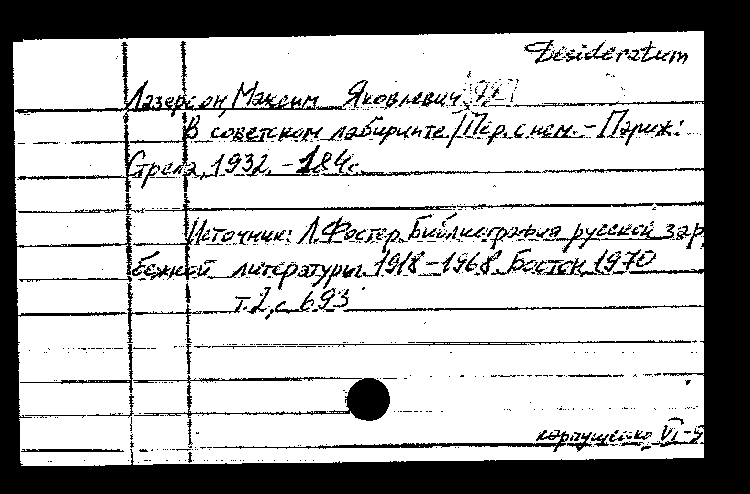 Desideratum
Лазерсон, Максим Яковлевич
В советском лабиринте / Пер. с нем. - Париж:
Стрела, 1932. - 184с.
Источник: Л. Фостер. Библиография русской зар
бежной литературы. 1918-1968. Бостон 1970
т. 2, с 693
карпущенко VI-9